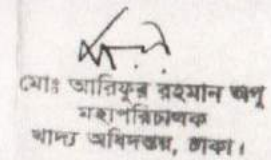 মোঃ আরিফুর রহমান অপু
মহাপরিচালক
খাদ্য অধিদপ্তর, ঢাকা।